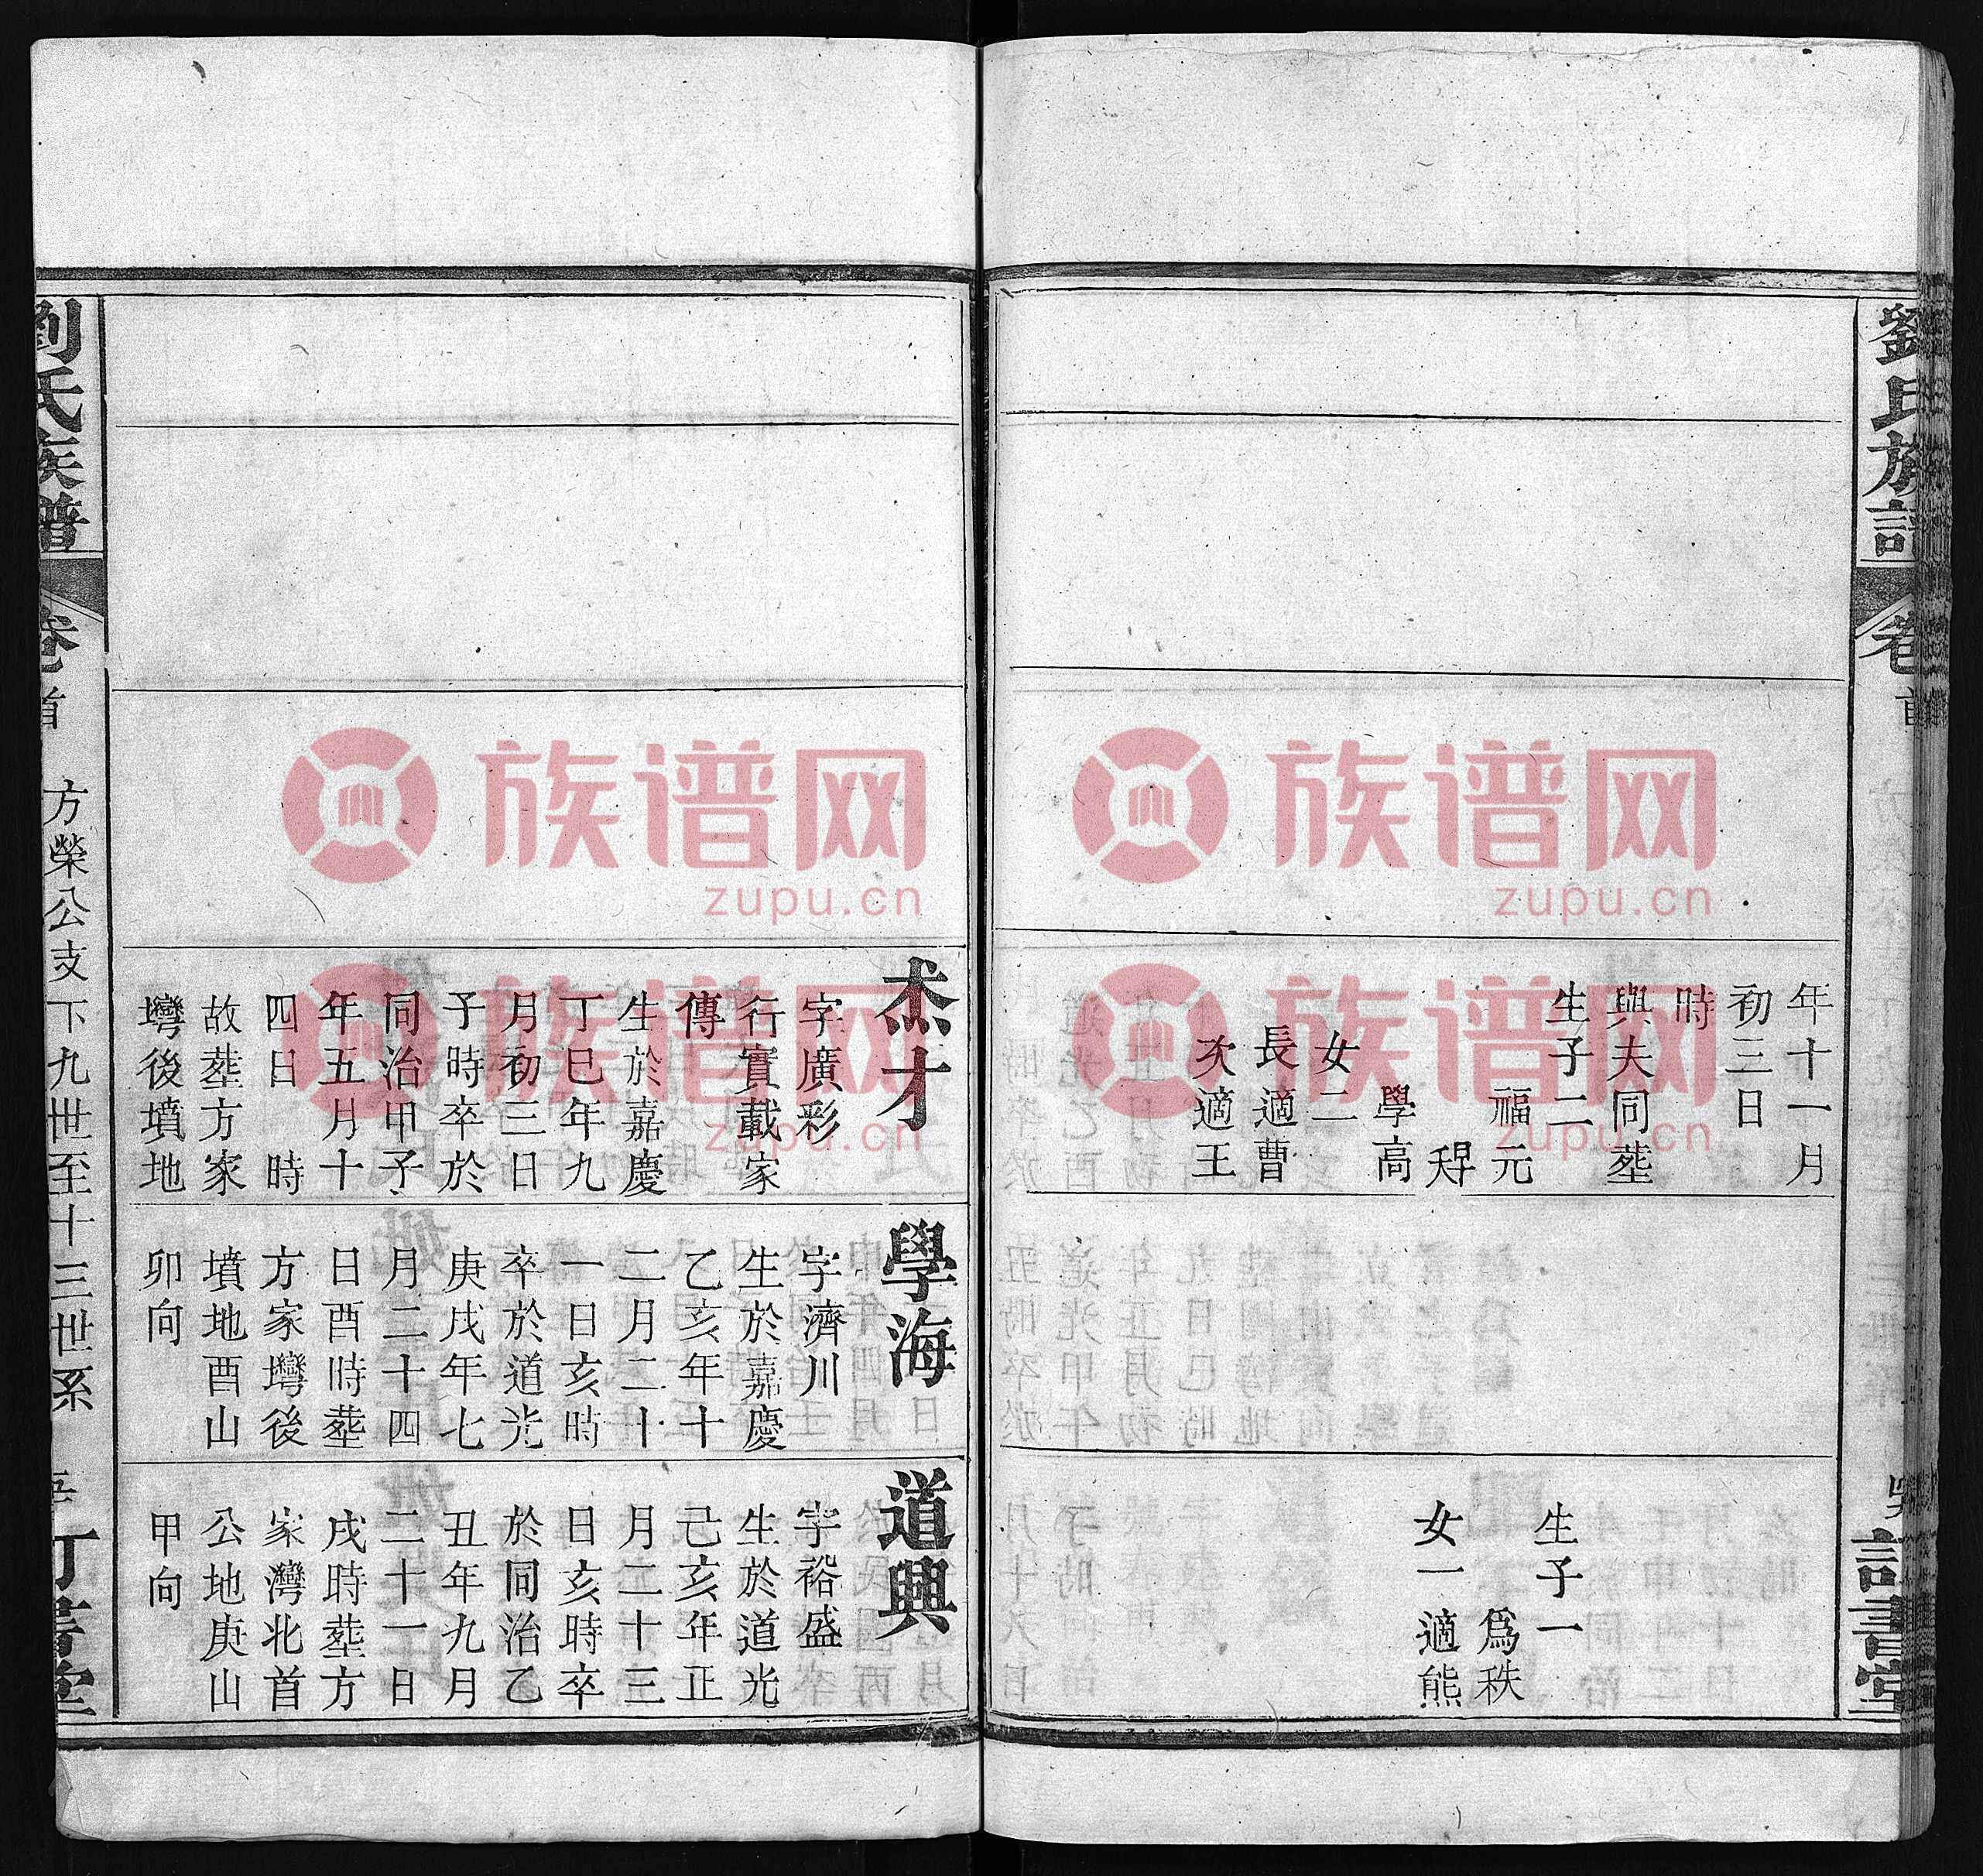 劉氏族譜
卷首
訂書堂
年十一月
初三日
時
與夫同塟
生子二
福元
學高
女二
長適曹
次適王
生子一
爲秩
女一適熊
杰才
字廣彩
行實載家
傳
生於嘉慶
丁巳年九
月初三日
子時卒於
同治甲子
年五月十
四日　時
故塟方家
塆後墳地
學海
字濟川
生於嘉慶
乙亥年十
二月二十
一日亥時
卒於道光
庚戌年七
月二十四
日酉時塟
方家塆後
墳地酉山
卯向
道興
字裕盛
生於道光
己亥年正
月二十三
日亥時卒
於同治乙
丑年九月
二十一日
戌時塟方
家灣北首
公地庚山
甲向
劉氏族譜
卷首
方榮公支下九世至十三世系
訂書堂
族谱网
zupu.cn
族谱网
zupu.cn
族谱网
zupu.cn
族谱网
zupu.cn